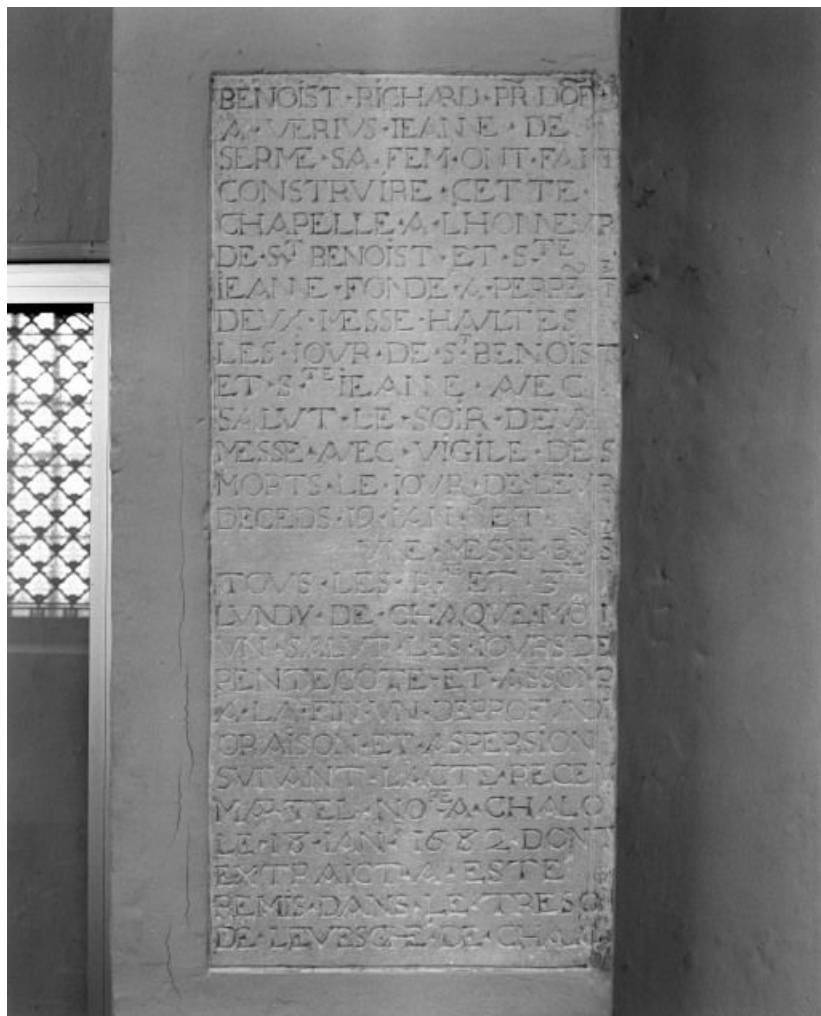 BENOIST·RICHARD·PR̃ DOR̃·
A·VERIVS·IEANNE·DE
SERME·SA·FEM·ONT·FAIT
CONSTRVIRE·CETTE·
CHAPELLE·A·LHONNEVR
DE·ST BENOIST·ET·S·TE
IEANNE·FONDE·A·PERPE T
DEVX·MESSE·HAVLTES
LES·IOVR·DE·ST·BENOIST
ET·S·TE IEANNE·AVEC
SALVT·LE·SOIR·DEVX
MESSE·AVEC·VIGILE·DES
MORTS·LE·IOVR·DE·LEVR
DECEDS·19·IAN· ET
VNE·MESSE·
TOVS·LES· ET
LVNDY·DE·CHAQVE·MOI
VN·SALVT·LES·IOVRS·DE
PENTECOTE·ET·ASSOMP
A·LA·FIN·VN·DEPROFVND
ORAISON·ET·ASPERSION
SVIVANT·LACTE·RECEV
MARTEL·NORE·A·CHALO
LE·18·IAN·1682·DONT
EXTRAICT·A·ESTE
REMIS·DANS·LE·TRESO
DE·LEVESCHE·DE·CHALO